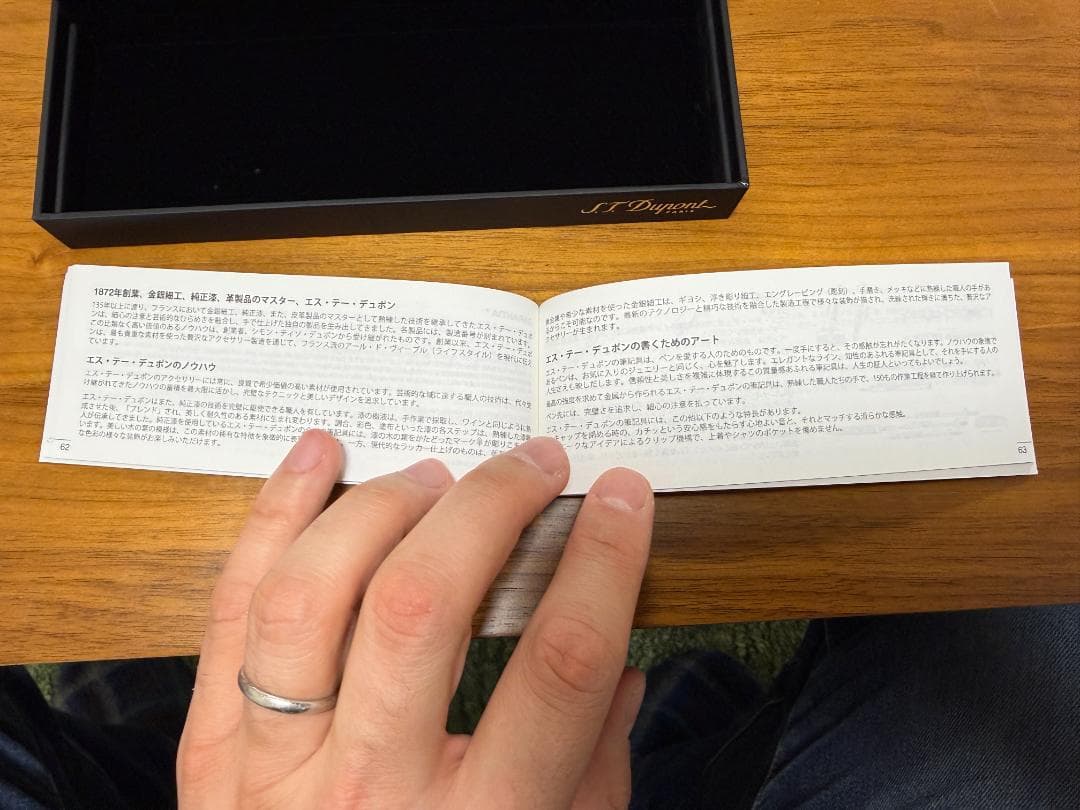 S.T. Dupont
PARIS
1872年創業、金銀細工、純正漆、革製品のマスター、エス・テー・デュポン
135年以上に渡り、フランスにおいて金銀細工、純正漆、また、皮革製品のマスターとして熟練した技術を継承してきたエス・テー・デュポ
ンは、細心の注意と芸術的なひらめきを融合し、手で仕上げた独自の製品を生み出してきました。各製品には、製造番号が刻まれています。
この比類なく高い価値のあるノウハウは、創業者、シモン・ティソ・デュポンから受け継がれたものです。創業以来、エス・テー・デュポ
ンは、最も貴重な素材を使った贅沢なアクセサリー製造を通じて、フランス流のアール・ド・ヴィーヴル(ライフスタイル)を現代に伝え
ています。
エス・テー・デュポンのノウハウ
エス・テー・デュポンのアクセサリーには常に、良質で希少価値の高い素材が使用されています。芸術的な域に達する職人の技術は、代々受
け継がれてきたノウハウの蓄積を最大限に活かし、完璧なテクニックと美しいデザインを追求しています。
エス・テー・デュポンはまた、純正漆の技術を完璧に駆使できる職人を有しています。漆の樹液は、手作業で採取し、ワインと同じように熟
成させた後、「ブレンド」され、美しく耐久性のある素材に生まれ変わります。調合、彩色、塗布といった漆の各ステップは、熟練した漆職
人が伝承してきました。純正漆を使用しているエス・テー・デュポンの
筆記具には、漆の木の葉をかたどったマークが彫り
います。美しい木の葉の模様は、この素材の稀有な特徴を象徴的に表
一方、現代的なラッカー仕上げのものは、
な色彩の様々な装飾がお楽しみいただけます。
62
貴金属や希少な素材を使った金銀細工は、ギヨシ、浮き彫り細工、エングレービング(彫刻)、手磨き、メッキなどに熟練した職人の手があ
るからこそ可能なのです。最新のテクノロジーと精巧な技術を融合した製造工程で様々な装飾が描され、洗練された輝きに満ちた、贅沢なア
クセサリーが生まれます。
エス・テー・デュポンの書くためのアート
エス・テー・デュポンの筆記具は、ペンを愛する人のためのものです。一度手にすると、その感触が忘れがたくなります。ノウハウの象徴で
あるペンは、お気に入りのジュエリーと同じく、心を魅了します。エレガントなライン、知性のあふれる筆記具として、それを手にする人の
人生さえも映しだします。信頼性と美しさを複雑に体現するこの質量感あふれる筆記具は、人生の証人といってもよいでしょう。
最高の強度を求めて金属から作られるエス・テー・デュポンの筆記具は、熟練した職人たちの手で、150もの作業工程を経て作り上げられます。
ペン先には、完璧さを追求し、細心の注意を払っています。
エス・テー・デュポンの筆記具には、この他以下のような特長があります。
キャップを閉める時の、カチッという安心感をもたらす心地よい音と、それとマッチする滑らかな感触。
ークなアイデアによるクリップ機構で、上着やシャツのポケットを傷めません。
63